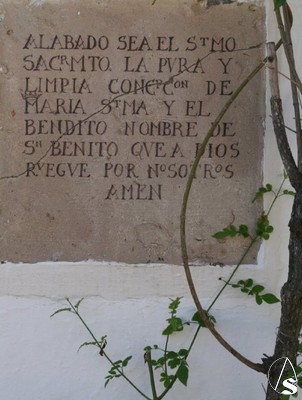 ALABADO SEA EL STMO
SACRMTO. LA PVRA Y
LIMPIA CONCPCON DE
MARIA STMA Y EL
BENDITO NOMBRE DE
SN BENITO QVE A DIOS
RVEGVE POR NOSOTROS
AMEN